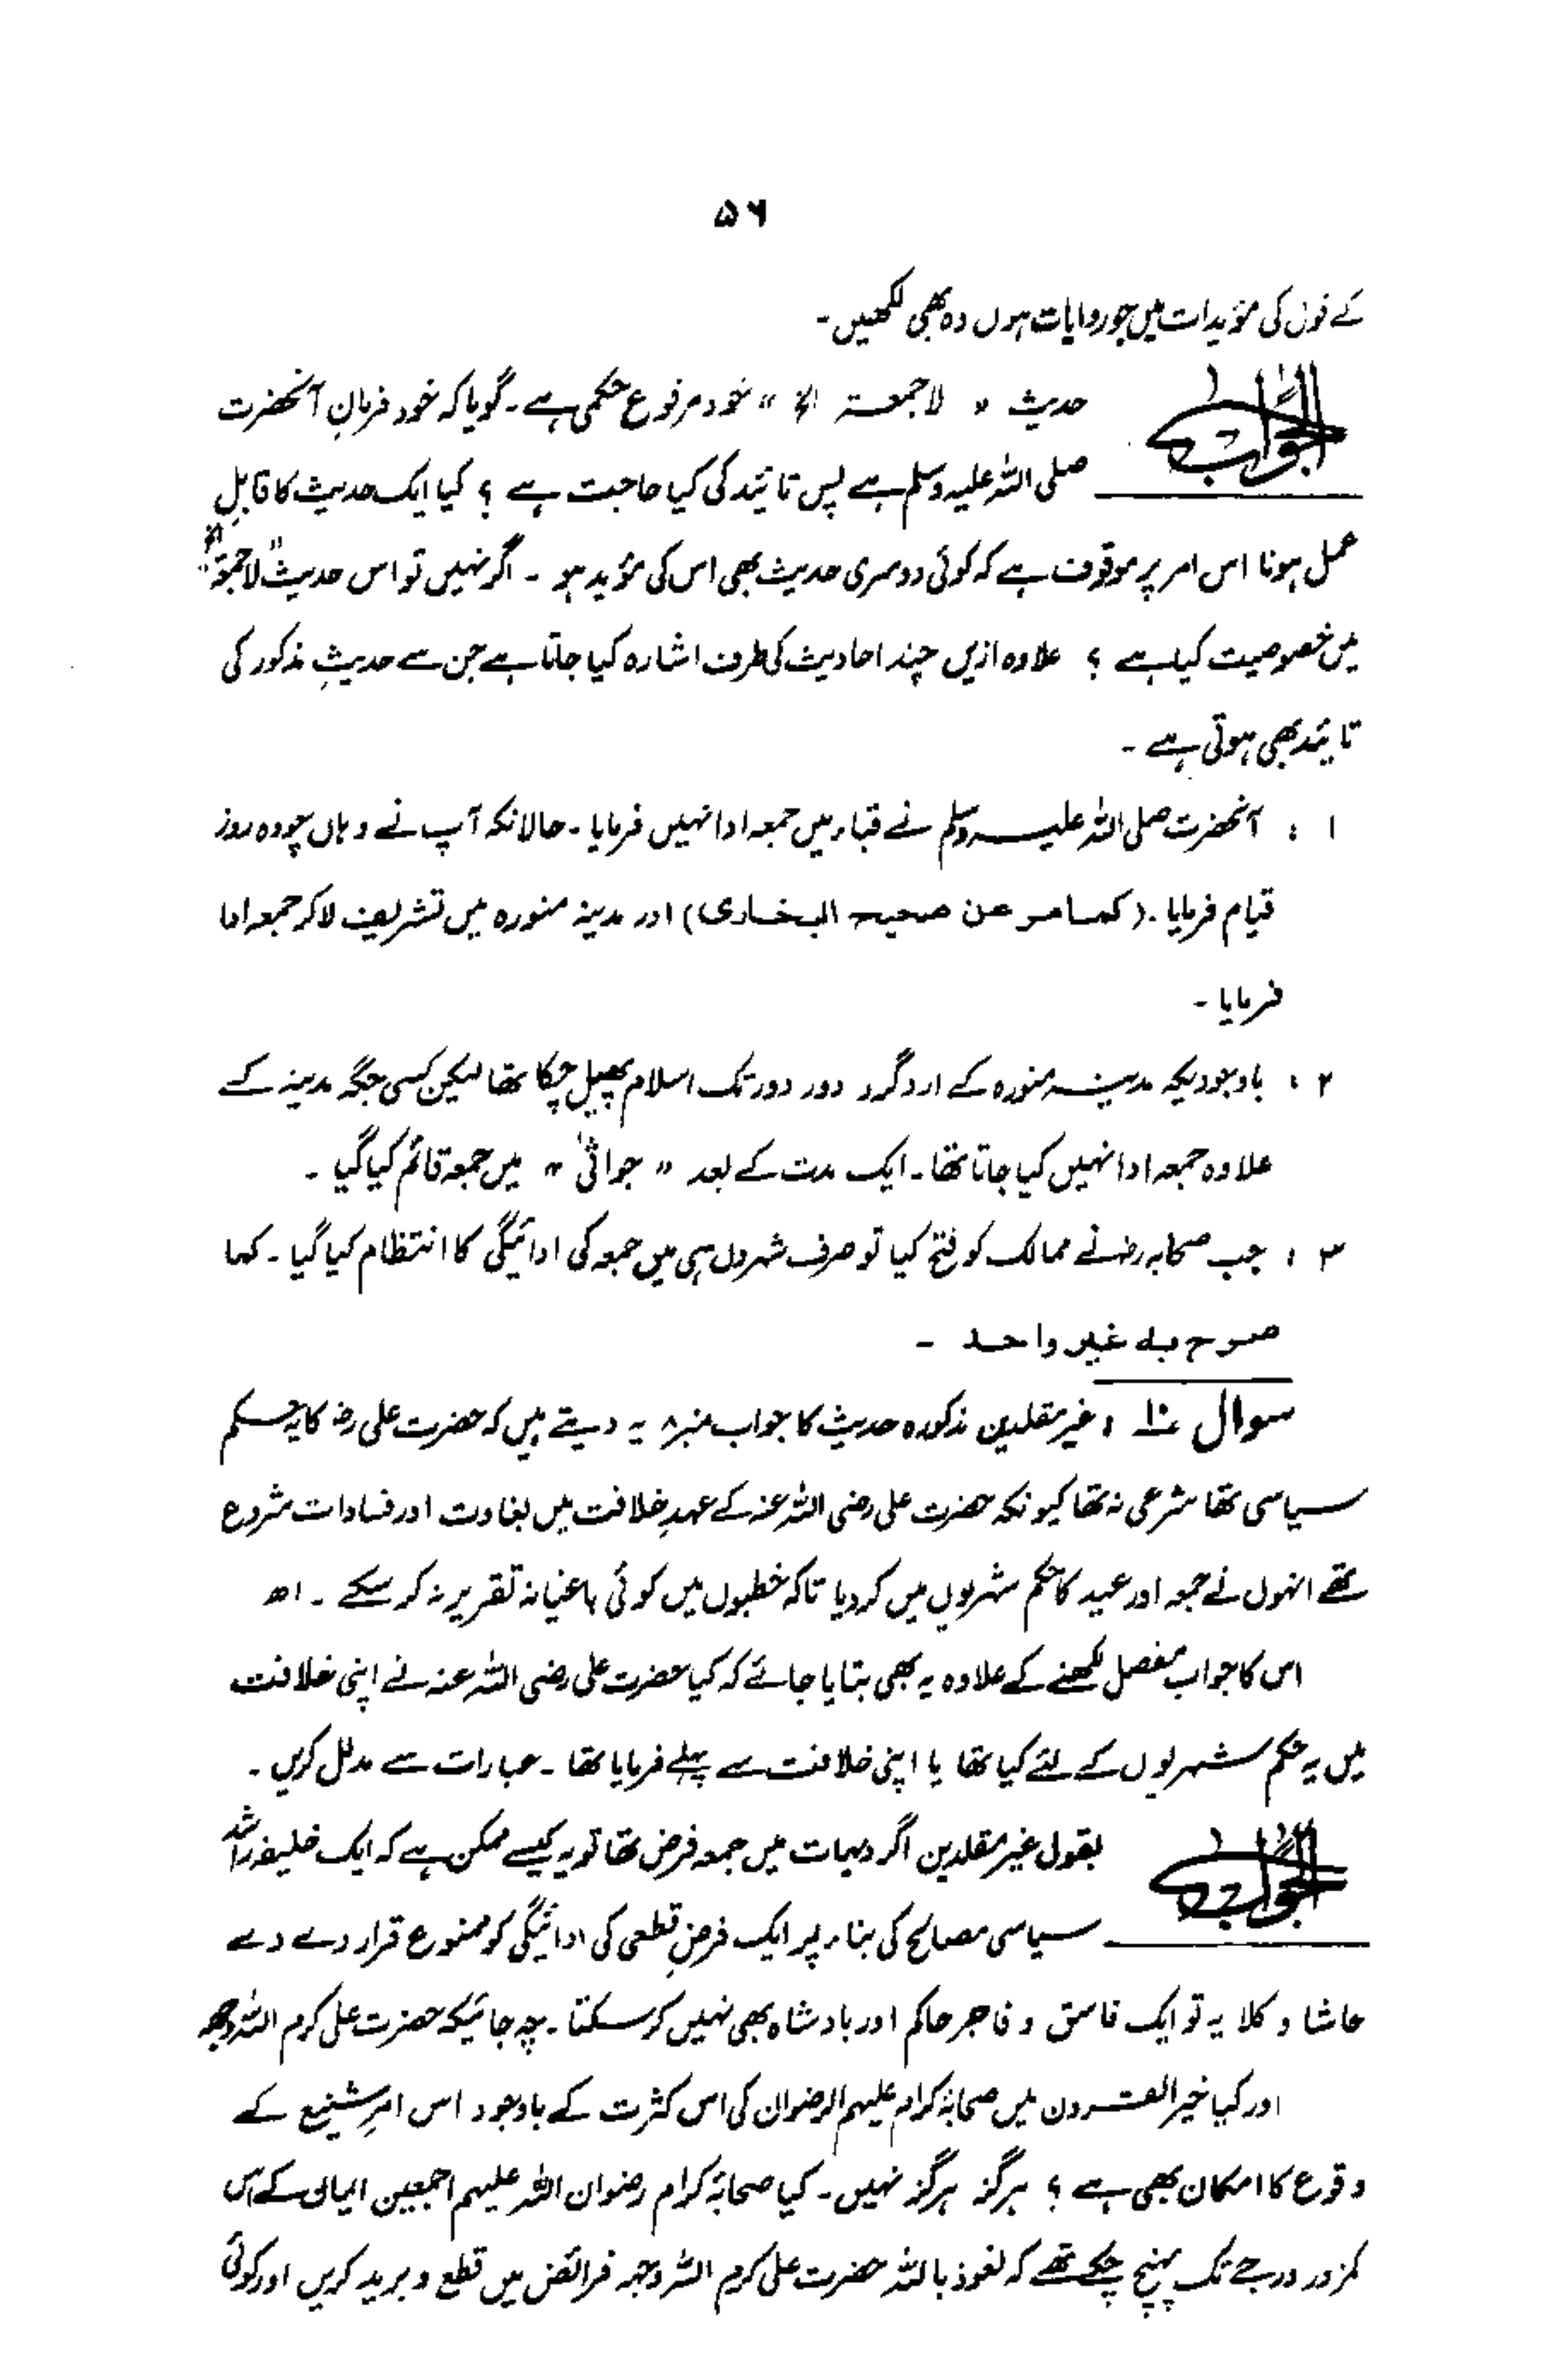 ۵۶
کے قول کی مؤیدات میں جو روایات ہوں وہ بھی لکھیں۔
الجواب
حدیث " لا جمعۃ الخ " خود مرفوع حکمی ہے۔ گویا کہ خود فرمانِ آنحضرت
صلی اللہ علیہ وسلم ہے پس تائید کی کیا حاجت ہے ؟ کیا ایک حدیث کا قابلِ
عمل ہونا اس امر پر موقوف ہے کہ کوئی دوسری حدیث بھی اس کی مؤید ہو ۔ اگر نہیں تو اس حدیث "لا جمعۃ الخ"
میں خصوصیت کیا ہے ؟ علاوہ ازیں چند احادیث کی طرف اشارہ کیا جاتا ہے جن سے حدیثِ مذکور کی
تائید بھی ہوتی ہے ۔
۱ : آنحضرت صلی اللہ علیہ وسلم نے قباء میں جمعہ ادا نہیں فرمایا۔ حالانکہ آپ نے وہاں چودہ روز
قیام فرمایا ۔ (کما مر عن صحیح البخاری) اور مدینہ منورہ میں تشریف لا کر جمعہ ادا
فرمایا ۔
۲ : باوجودیکہ مدینہ منورہ کے اردگرد دور دور تک اسلام پھیل چکا تھا لیکن کسی جگہ مدینہ کے
علاوہ جمعہ ادا نہیں کیا جاتا تھا۔ ایک مدت کے بعد " جواثیٰ " میں جمعہ قائم کیا گیا ۔
۳ : جب صحابہ رضؓ نے ممالک کو فتح کیا تو صرف شہروں ہی میں جمعہ کی ادائیگی کا انتظام کیا گیا ۔ کما
صرح بہ غیر واحد ۔
سوال ۱۰ : غیر مقلدین مذکورہ حدیث کا جواب نمبر ۸ یہ دیتے ہیں کہ حضرت علی رضؓ کا یہ حکم
سیاسی تھا شرعی نہ تھا کیونکہ حضرت علی رضی اللہ عنہ کے عہدِ خلافت میں بغاوت اور فسادات شروع
تھے انہوں نے جمعہ اور عید کا حکم شہریوں میں کر دیا تاکہ خطبوں میں کوئی باغیانہ تقریر نہ کر سکے ۔ اھ
اس کا جواب مفصل لکھنے کے علاوہ یہ بھی بتایا جائے کہ کیا حضرت علی رضی اللہ عنہ نے اپنی خلافت
میں یہ حکم شہریوں کے لئے کیا تھا یا اپنی خلافت سے پہلے فرمایا تھا ۔ عبارات سے مدلل کریں ۔
الجواب
بقول غیر مقلدین اگر دیہات میں جمعہ فرض تھا تو یہ کیسے ممکن ہے کہ ایک خلیفہ راشد
سیاسی مصالح کی بناء پر ایک فرضِ قطعی کی ادائیگی کو ممنوع قرار دے دے
حاشا و کلا یہ تو ایک فاسق و فاجر حاکم اور بادشاہ بھی نہیں کر سکتا ۔ چہ جائیکہ حضرت علی کرم اللہ وجہہ
اور کیا خیر القرون میں صحابۂ کرام علیہم الرضوان کی اس کثرت کے باوجود اس امرِ شنیع کے
وقوع کا امکان بھی ہے ؟ ہرگز ہرگز نہیں ۔ کیا صحابۂ کرام رضوان اللہ علیہم اجمعین ایمانی کے اس
کمزور درجے تک پہنچ چکے تھے کہ نعوذ باللہ حضرت علی کرم اللہ وجہہ فرائض میں قطع و برید کریں اور کوئی